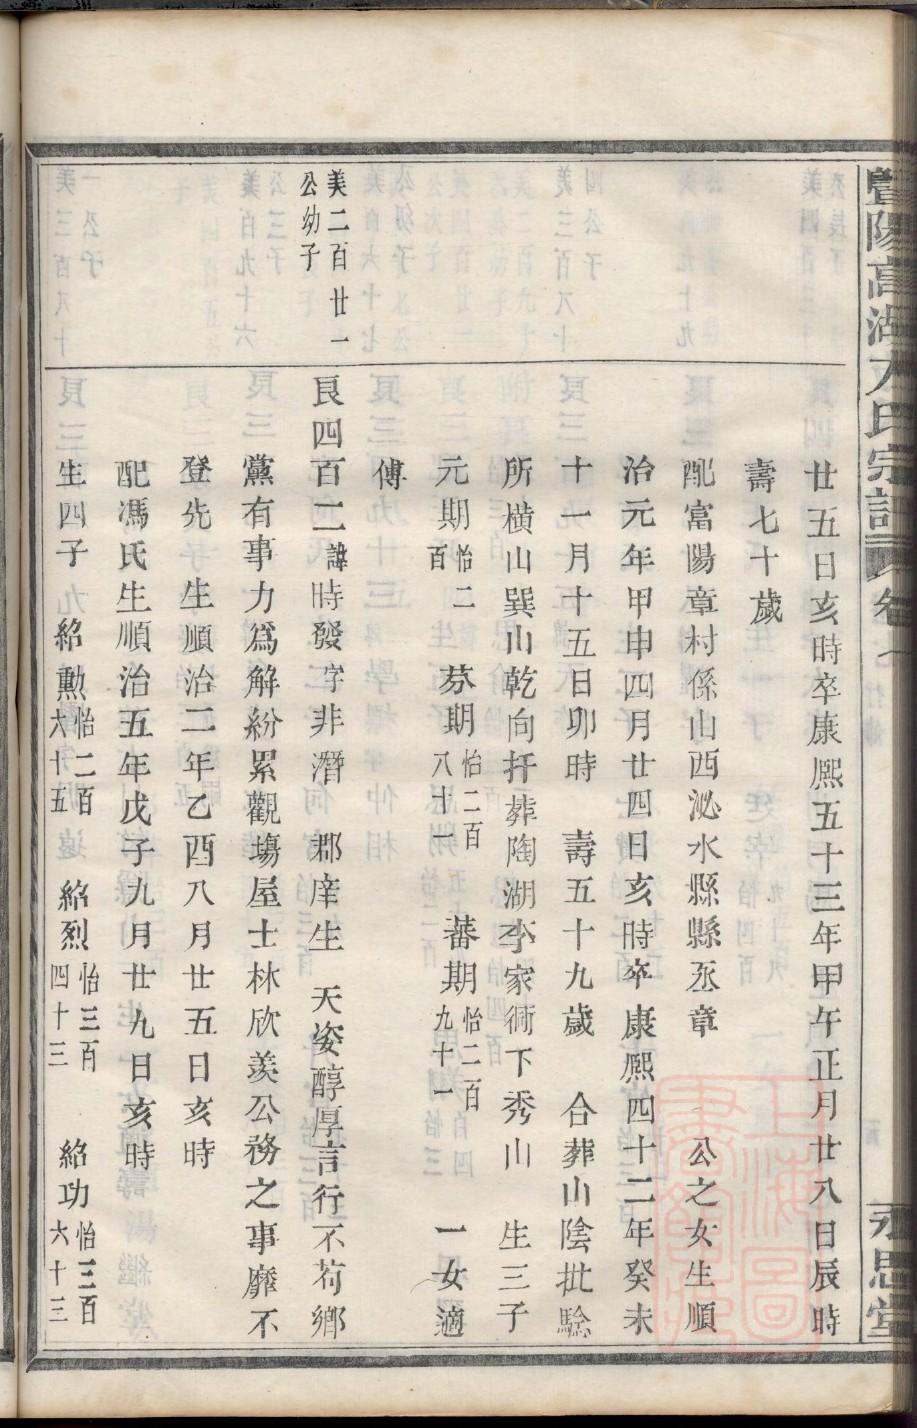 暨陽高湖方氏宗譜 卷一 永思堂
廿五日亥時卒康熙五十三年甲午正月廿八日辰時
壽七十歲
配富陽章村係山西泌水縣縣丞章 公之女生順
治元年甲申四月廿四日亥時卒康熙四十二年癸未
十一月十五日卯時 壽五十九歲 合葬山陰批驗
所橫山巽山乾向扦葬陶湖李家衕下秀山 生三子
元期怡二百 芬期怡二百八十一 蕃期怡二百九十一 一女適
傅
美二百廿一公幼子
良四百二諱時發字非潛 郡庠生 天姿醇厚言行不苟鄉
黨有事力爲解紛累觀塲屋士林欣羨公務之事靡不
登先 生順治二年乙酉八月廿五日亥時
配馮氏生順治五年戊子九月廿九日亥時
生四子 紹勲怡二百六十五 紹烈怡三百四十三 紹功怡三百六十三